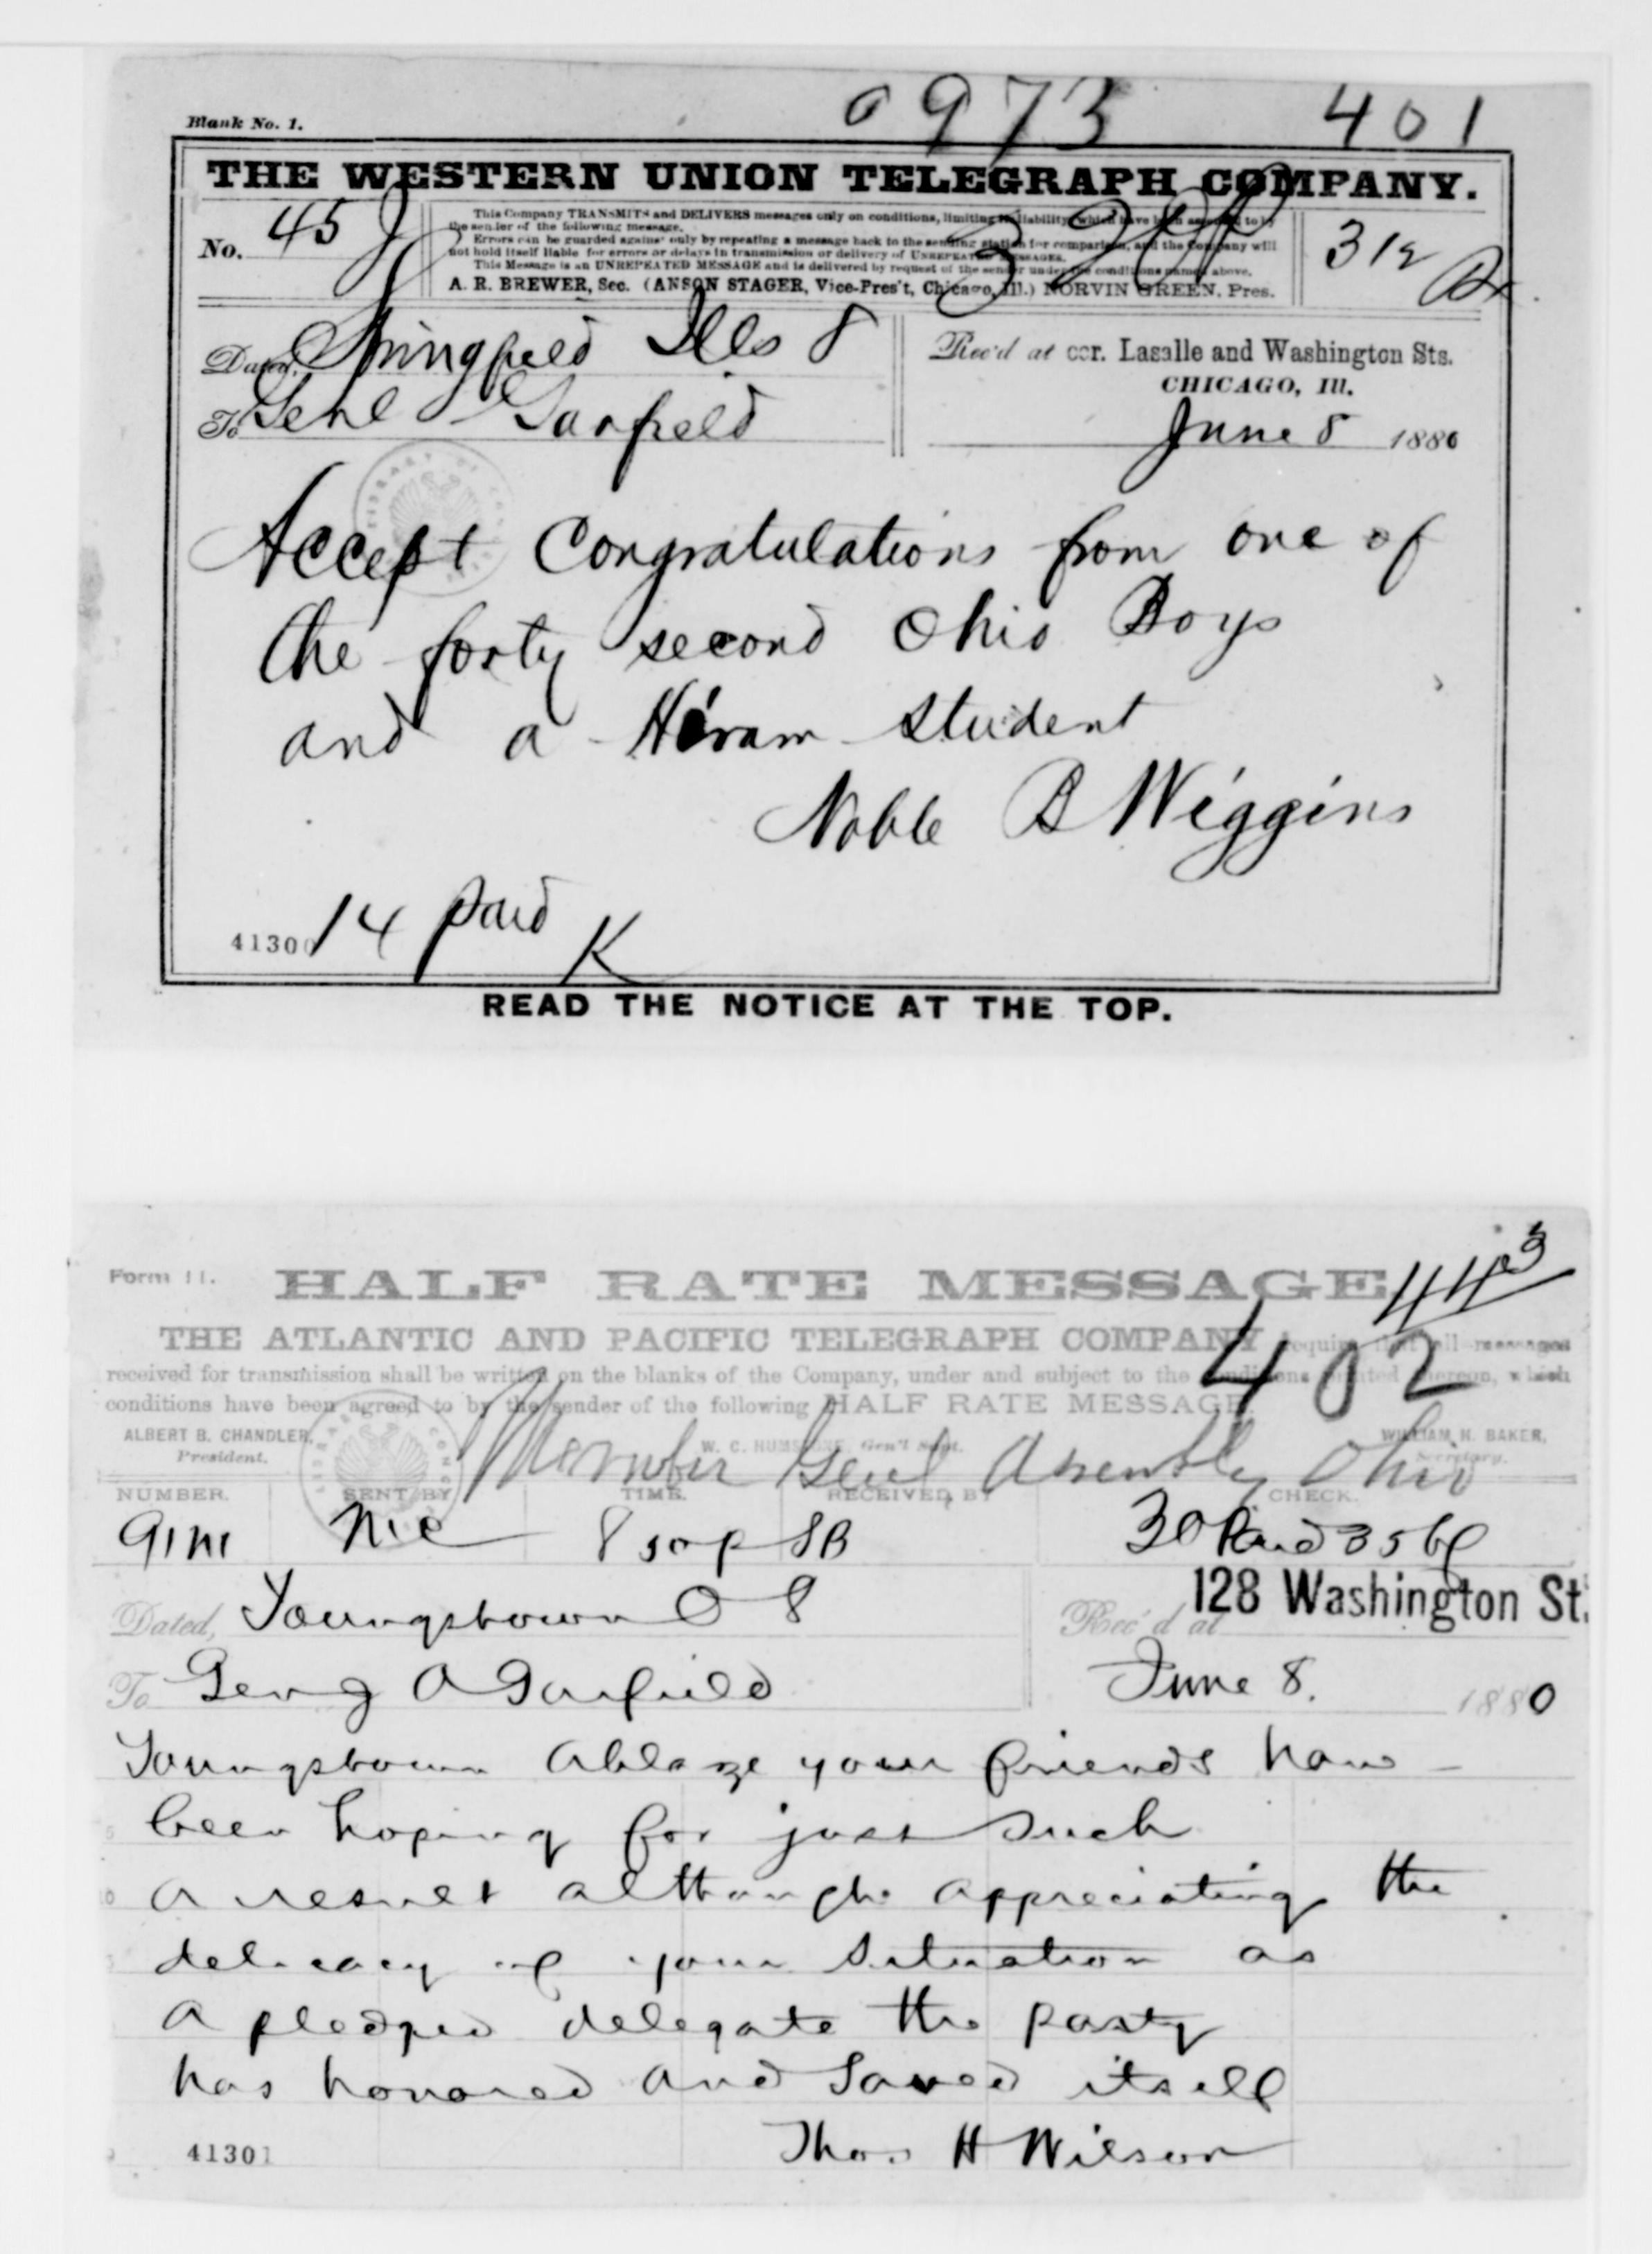 0973 401
Blank No. 1.
THE WESTERN UNION TELEGRAPH COMPANY.
No. 45
This Company TRANSMITS and DELIVERS messages only on conditions, limiting its liability, which have been assented to by
the sender of the following message.
Errors can be guarded against only by repeating a message back to the sending station for comparison, and the Company will
not hold itself liable for errors or delays in transmission or delivery of UNREPEATED MESSAGES.
This Message is an UNREPEATED MESSAGE and is delivered by request of the sender under the conditions named above.
A. R. BREWER, Sec. (ANSON STAGER, Vice-Pres't, Chicago, Ill.) NORVIN GREEN, Pres.
312
Dated, Springfield Ills 8
Rec'd at cor. Lasalle and Washington Sts.
CHICAGO, Ill.
To Genl Garfield
June 8 1880
Accept Congratulations from one of
the forty second Ohio Boys
and a Hiram student
Noble B Wiggins
14 paid K
41300
READ THE NOTICE AT THE TOP.
443
Form 11.
HALF RATE MESSAGE
THE ATLANTIC AND PACIFIC TELEGRAPH COMPANY requires that all messages
402
received for transmission shall be written on the blanks of the Company, under and subject to the conditions printed thereon, which
conditions have been agreed to by the sender of the following HALF RATE MESSAGE.
ALBERT B. CHANDLER, President.
W. C. HUMSTONE, Gen'l Supt.
WILLIAM H. BAKER, Secretary.
Member Genl Assembly Ohio
NUMBER. SENT BY TIME. RECEIVED BY CHECK.
8 50p SB 30 Paid
Dated, Youngstown O 8
Rec'd at 128 Washington St.
To Gen J A Garfield
June 8. 1880
Youngstown Ablaze your friends have
been hoping for just such
a result although appreciating the
delicacy of your situation as
a pledged delegate the party
has honored and saved itself
Thos H Wilson
41301